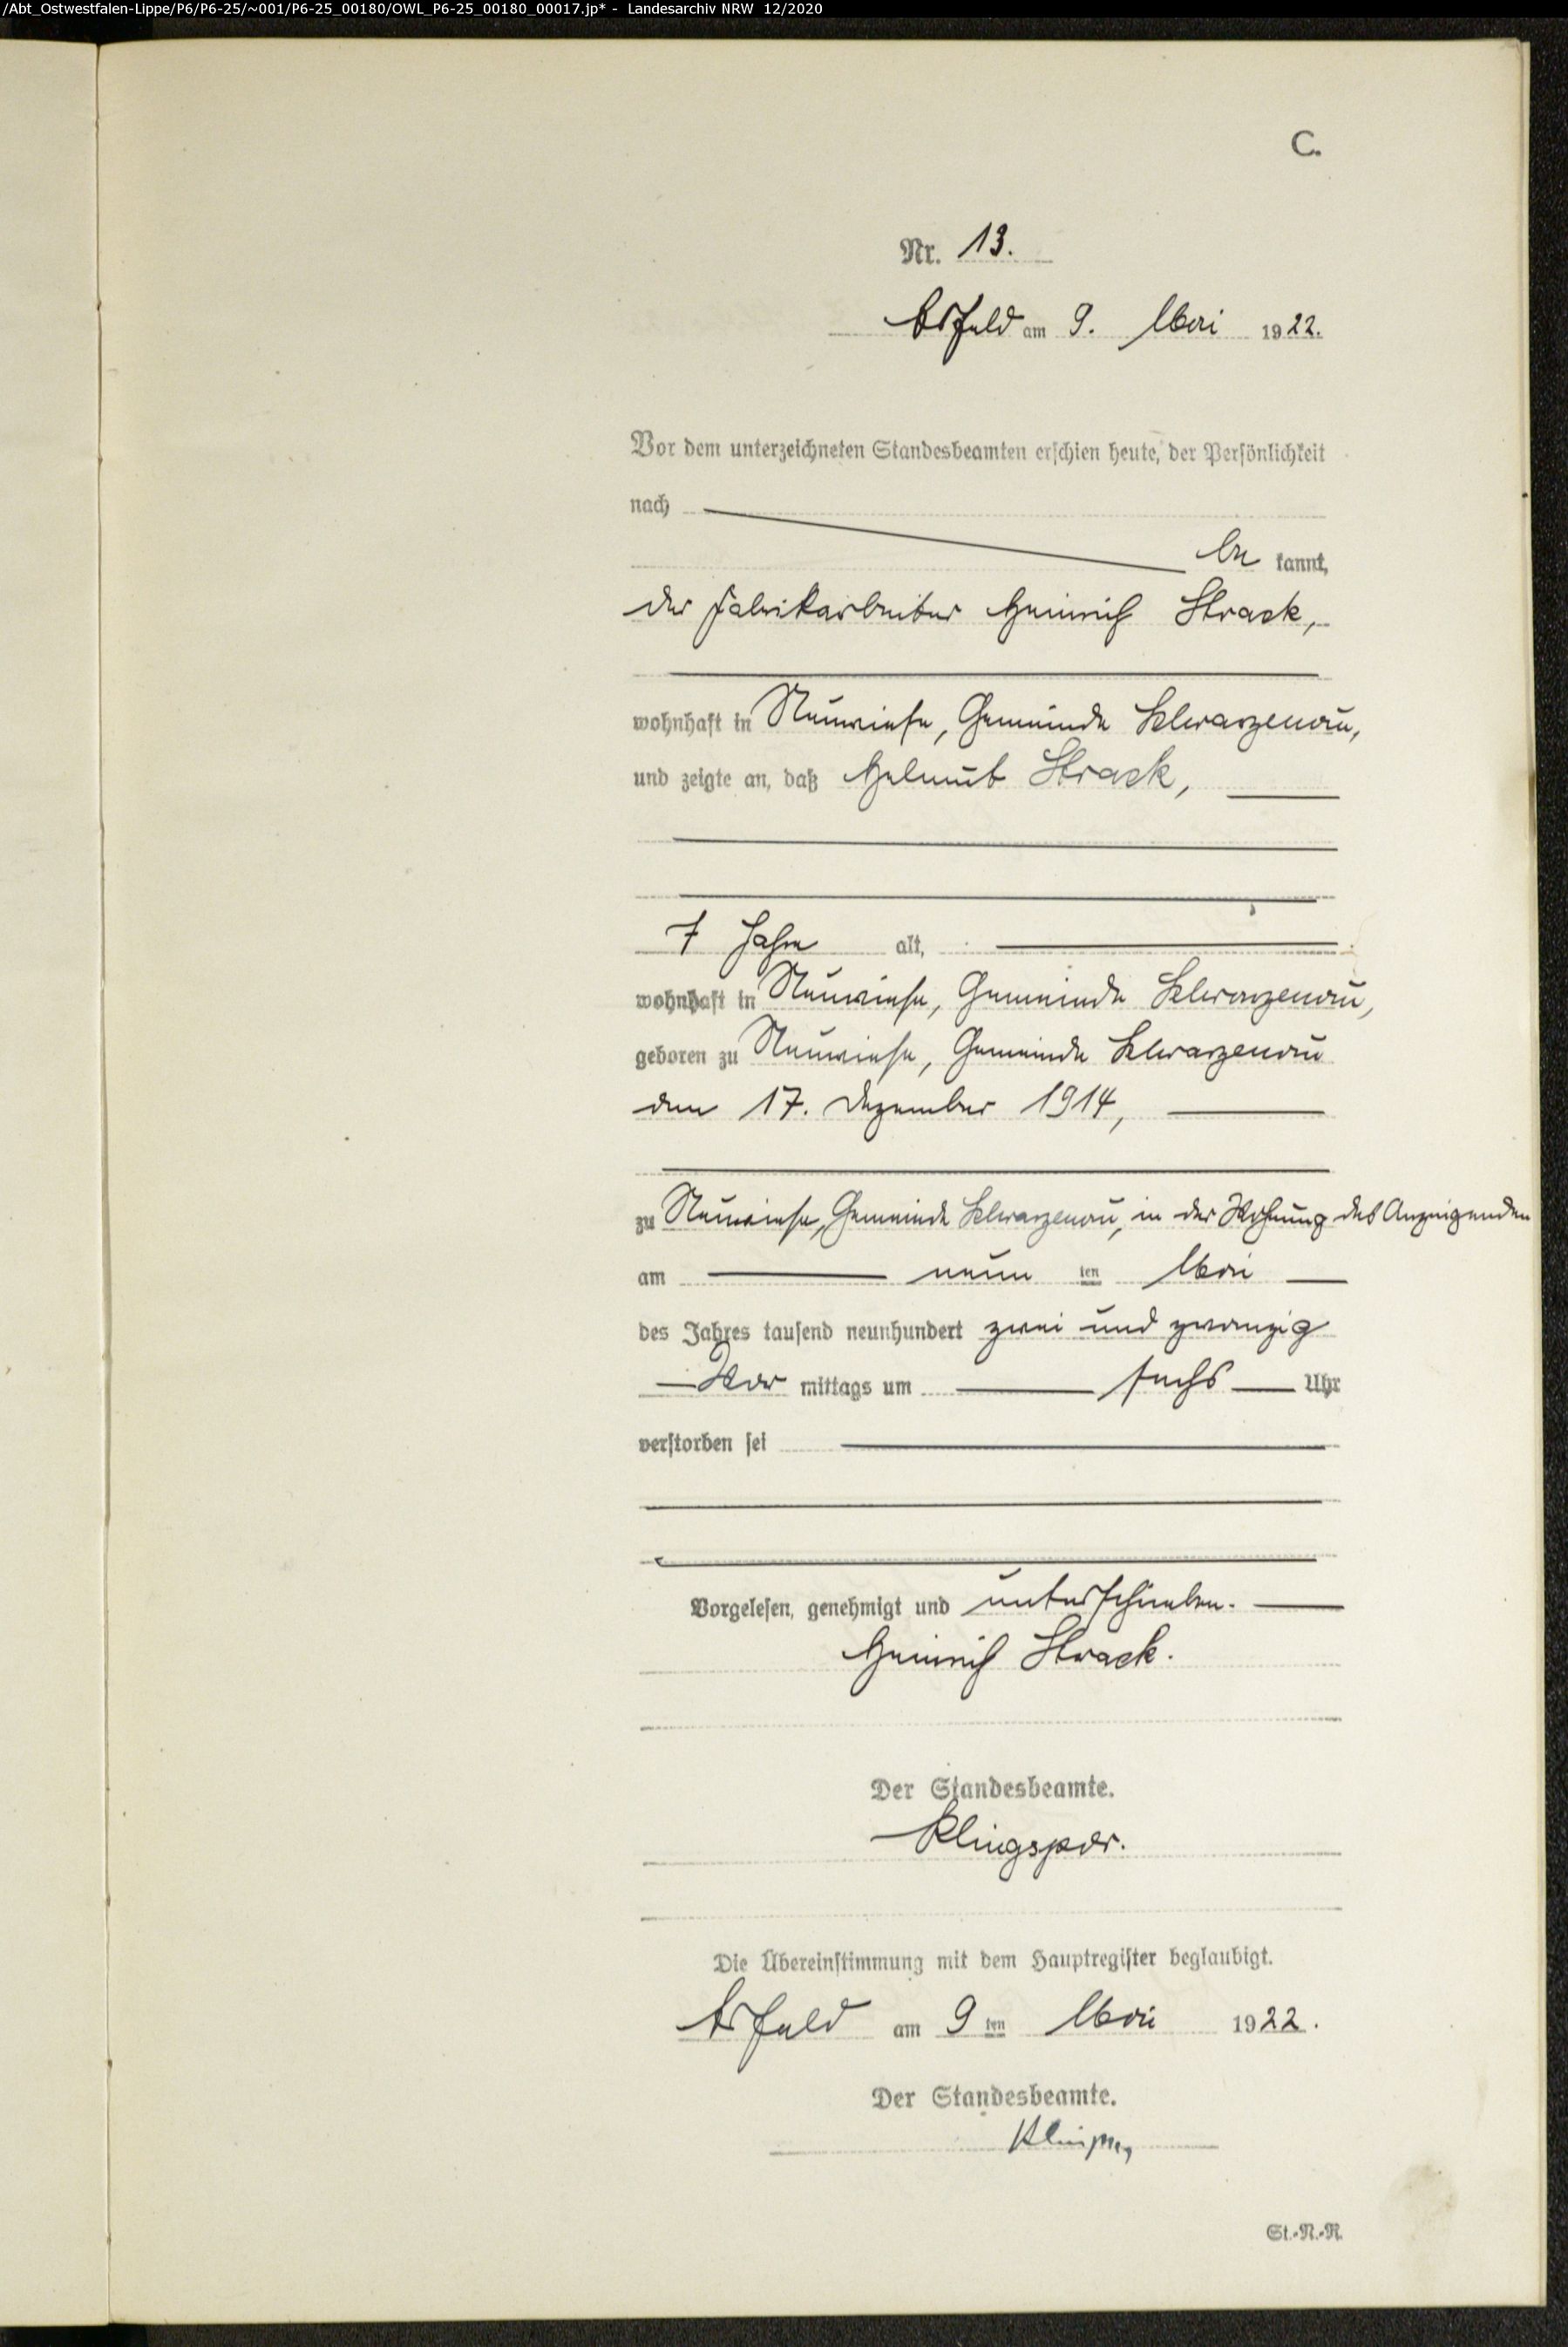 /Abt_Ostwestfalen-Lippe/P6/P6-25/~001/P6-25_00180/OWL_P6-25_00180_00017.jp* - Landesarchiv NRW 12/2020
C.
Nr. 13.
Arfeld am 9. Mai 1922.
Vor dem unterzeichneten Standesbeamten erschien heute, der Persönlichkeit
nach
be kannt,
der Fabrikarbeiter Heinrich Strack,
wohnhaft in Neuwiese, Gemeinde Schwarzenau,
und zeigte an, daß Helmut Strack,
7 Jahre alt,
wohnhaft in Neuwiese, Gemeinde Schwarzenau,
geboren zu Neuwiese, Gemeinde Schwarzenau
den 17. Dezember 1914,
zu Neuwiese, Gemeinde Schwarzenau, in der Wohnung des Anzeigenden
am neun ten Mai
des Jahres tausend neunhundert zwei und zwanzig
Vor mittags um sechs Uhr
verstorben sei
Vorgelesen, genehmigt und unterschrieben.
Heinrich Strack.
Der Standesbeamte.
Klingspor.
Die Übereinstimmung mit dem Hauptregister beglaubigt.
Arfeld am 9 ten Mai 1922.
Der Standesbeamte.
St.-N.-R.